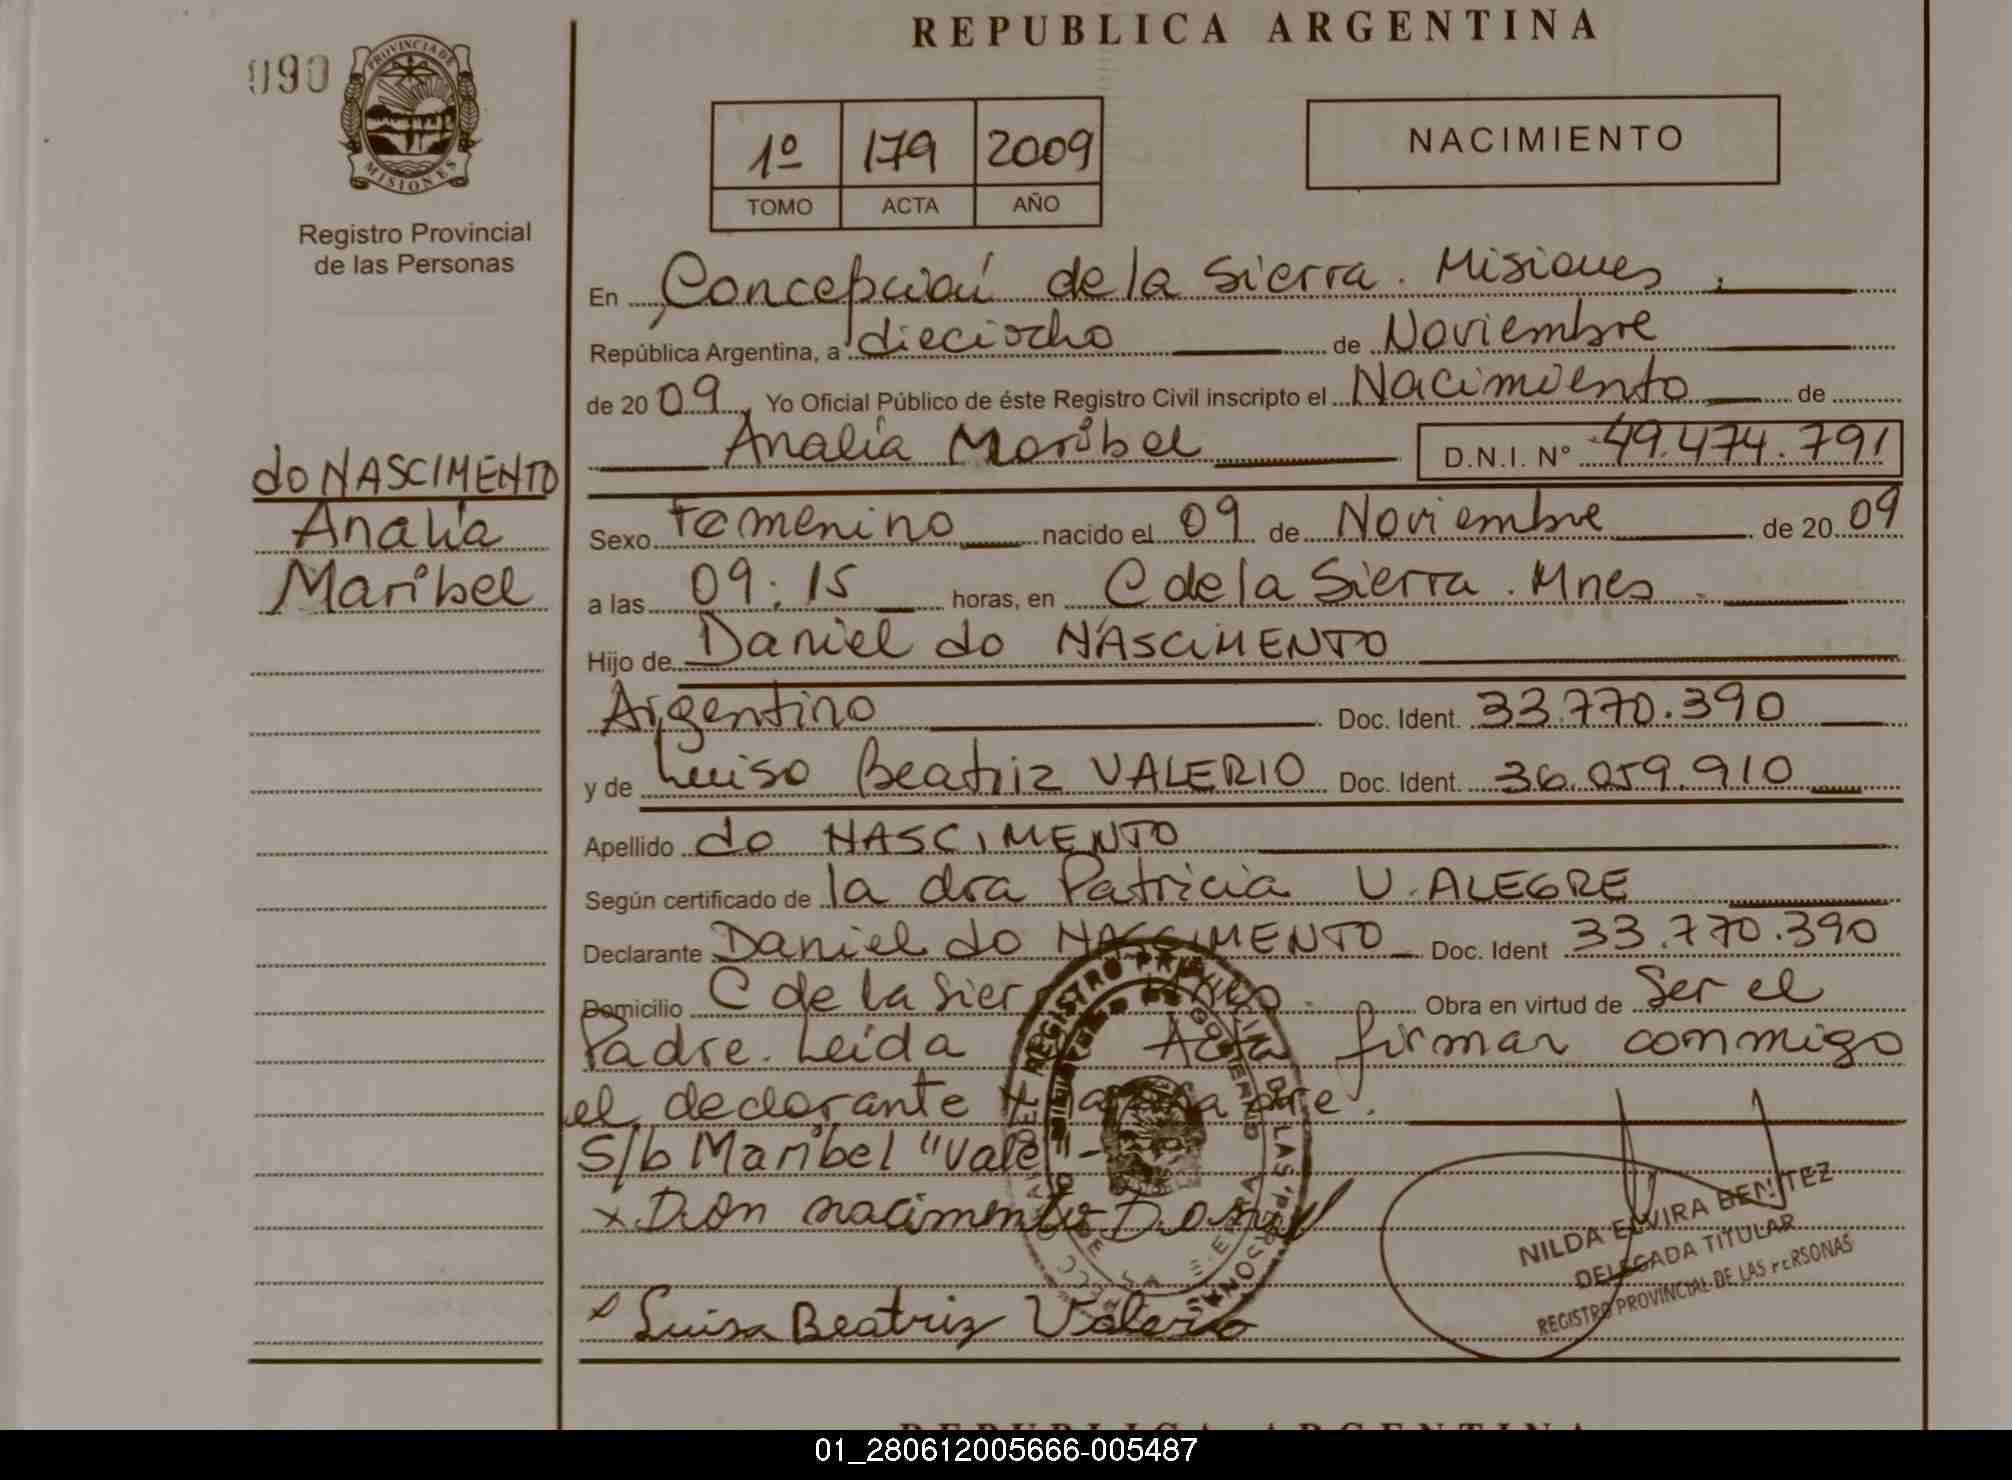 REPUBLICA ARGENTINA
090
PROVINCIA DE
MISIONES
Registro Provincial
de las Personas
1º 179 2009
TOMO ACTA AÑO
NACIMIENTO
En Concepción de la Sierra. Misiones.
República Argentina, a dieciocho de Noviembre
de 2009, Yo Oficial Público de éste Registro Civil inscripto el Nacimiento de
Analía Maribel D.N.I. Nº 49.474.791
do NASCIMENTO
Analía
Maribel
Sexo Femenino nacido el 09 de Noviembre de 2009
a las 09:15 horas, en C de la Sierra. Mnes.
Hijo de Daniel do NASCIMENTO
Argentino Doc. Ident. 33.770.390
y de Luisa Beatriz VALERIO Doc. Ident. 36.059.910
Apellido do NASCIMENTO
Según certificado de la dra Patricia U. ALEGRE
Declarante Daniel do NASCIMENTO Doc. Ident 33.770.390
Domicilio C de la Sierra Mnes. Obra en virtud de Ser el
Padre. Leída Acta firman conmigo
el declarante y la madre.
S/b Maribel "Vale" -
x Don nacimento Dany
x Luisa Beatriz Valerio
REGISTRO PROVINCIAL DE LAS PERSONAS
MINISTERIO DE GOBIERNO
NILDA ELVIRA BENITEZ
DELEGADA TITULAR
REGISTRO PROVINCIAL DE LAS PERSONAS
REPUBLICA ARGENTINA
01_280612005666-005487